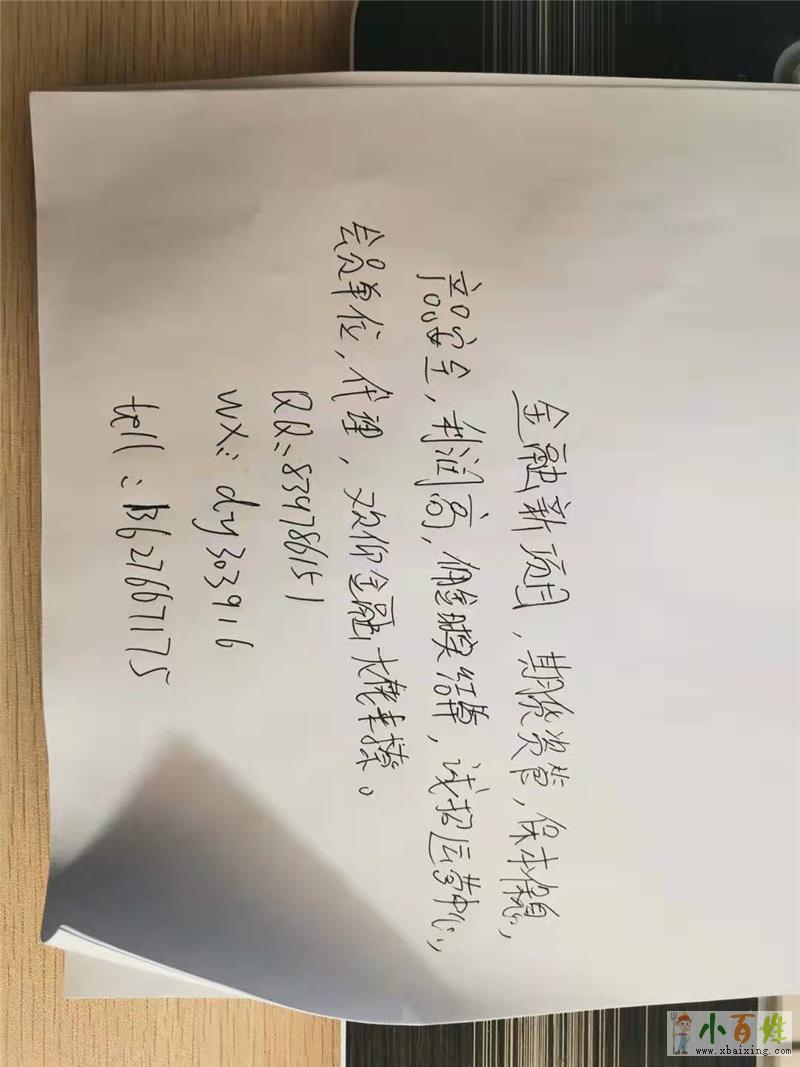 金融新项目，期货资管，保本保息，
产品安全，利润高，佣金碾契结算，诚招运营中心，
会员单位，代理，欢仰金融大佬来撩。
QQ：834786151
WX：dy303916
tell：13627667175
小百姓
www.xbaixing.com